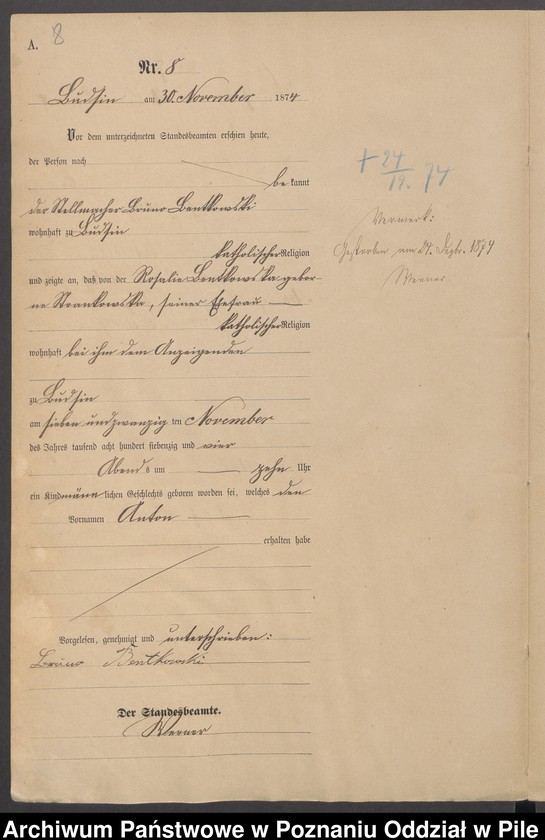 A. 8
Nr. 8
Budsin am 30. November 1874
Vor dem unterzeichneten Standesbeamten erschien heute,
der Person nach
bekannt
der Stellmacher Bruno Bentkowski
wohnhaft zu Budsin
katholischer Religion
und zeigte an, daß von der Rosalie Bentkowska gebor-
ne, seiner Ehefrau
katholischer Religion
wohnhaft bei ihm dem Anzeigenden
zu Budsin
am sieben und zwanzig ten November
des Jahres tausend acht hundert siebenzig und vier
Abends um zehn Uhr
ein Kind männlichen Geschlechts geboren worden sei, welches den
Vornamen Anton
erhalten habe
Vorgelesen, genehmigt und unterschrieben:
Bruno Bentkowski
Der Standesbeamte.
Werner
+ 24/12. 74
Vermerk:
Gestorben am 24. Dezbr. 1874
Werner
Archiwum Państwowe w Poznaniu Oddział w Pile